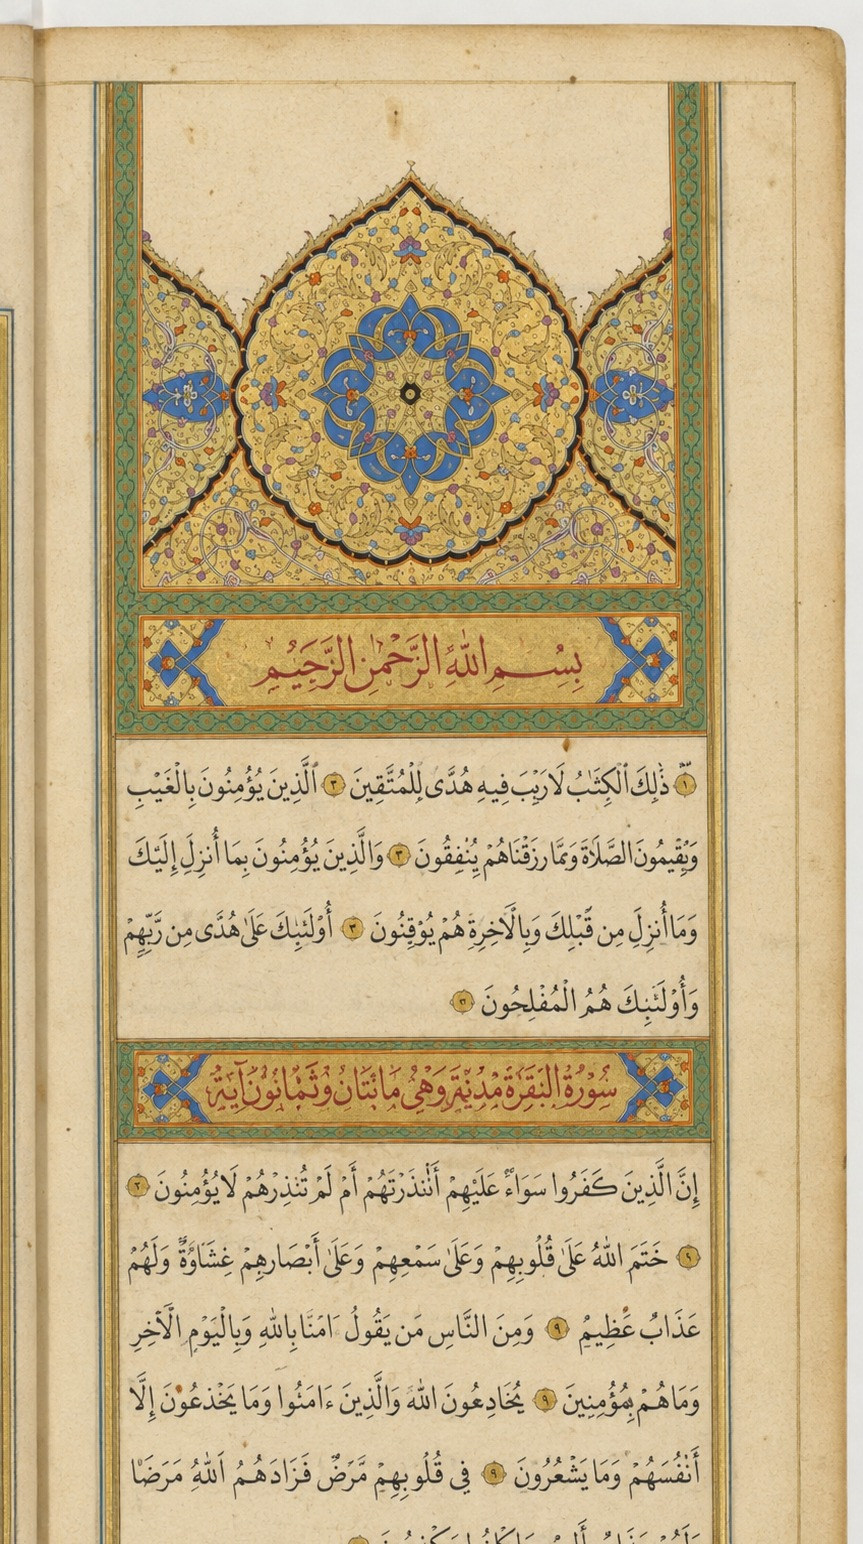 بِسْمِ اللَّهِ الرَّحْمَٰنِ الرَّحِيمِ
١ ذَٰلِكَ ٱلْكِتَٰبُ لَا رَيْبَ فِيهِ هُدًى لِلْمُتَّقِينَ ٣ ٱلَّذِينَ يُؤْمِنُونَ بِالْغَيْبِ
وَيُقِيمُونَ الصَّلَاةَ وَمِمَّا رَزَقْنَاهُمْ يُنْفِقُونَ ٣ وَالَّذِينَ يُؤْمِنُونَ بِمَا أُنزِلَ إِلَيْكَ
وَمَا أُنزِلَ مِن قَبْلِكَ وَبِالْآخِرَةِ هُمْ يُوْقِنُونَ ٣ أُوْلَٰئِكَ عَلَىٰ هُدًى مِن رَّبِّهِمْ
وَأُوْلَٰئِكَ هُمُ الْمُفْلِحُونَ
سُورَةُ البَقَرَةِ مَدَنِيَّة وَهِيَ مائتَان وَثَمَانُونَ آيَة
إِنَّ الَّذِينَ كَفَرُوا سَوَاءٌ عَلَيْهِمْ أَنْذَرْتَهُمْ أَمْ لَمْ تُنْذِرْهُمْ لَا يُؤْمِنُونَ ٢
٩ خَتَمَ اللَّهُ عَلَىٰ قُلُوبِهِمْ وَعَلَىٰ سَمْعِهِمْ وَعَلَىٰ أَبْصَارِهِمْ غِشَاوَةٌ وَلَهُمْ
عَذَابٌ عَظِيمٌ ٩ وَمِنَ النَّاسِ مَن يَقُولُ ءَامَنَّا بِاللَّهِ وَبِالْيَوْمِ الْآخِرِ
وَمَا هُمْ بِمُؤْمِنِينَ ٩ يُخَادِعُونَ اللَّهَ وَالَّذِينَ ءَامَنُوا وَمَا يَخْدَعُونَ إِلَّا
أَنْفُسَهُمْ وَمَا يَشْعُرُونَ ٩ فِي قُلُوبِهِمْ مَّرَضٌ فَزَادَهُمُ اللَّهُ مَرَضًا